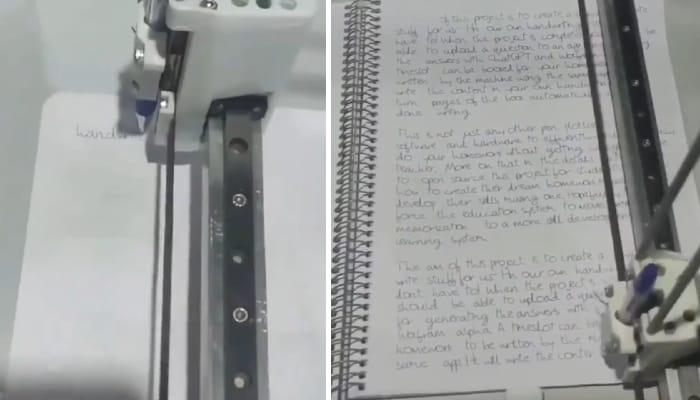 handw
of this project is to create a
stuff for us in our own handwriting
have to) when the project is complete
able to upload a question to an app
the answers with ChatGPT and Wolfram
timeslot can be booked for your home
written by the machine using the same
write the content in your own handwri
turn pages of the book automatic
done writing.
This is not just any other pen plotter
software and hardware to efficient
do your homework without getting
teacher. More on that in the details
to open source this project for stude
how to create their dream homework
develop their skills making one, hopeful
force the education system to move
memorization to a more skill develop
learning system.
The aim of this project is to create a
write stuff for us in our own handw
don't have to) when the project is
should be able to upload a ques
for generating the answers with
wolfram alpha. A timeslot can be
homework to be written by the m
same app. It will write the conten